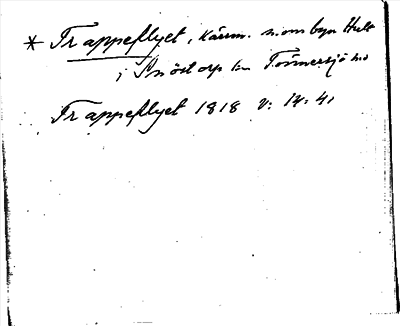 * Trappeflyet, kärrm. inom byn Hult
i Snöstorp sn Tönnersjö hd
Trappeflyet 1818 v: IV: 4,